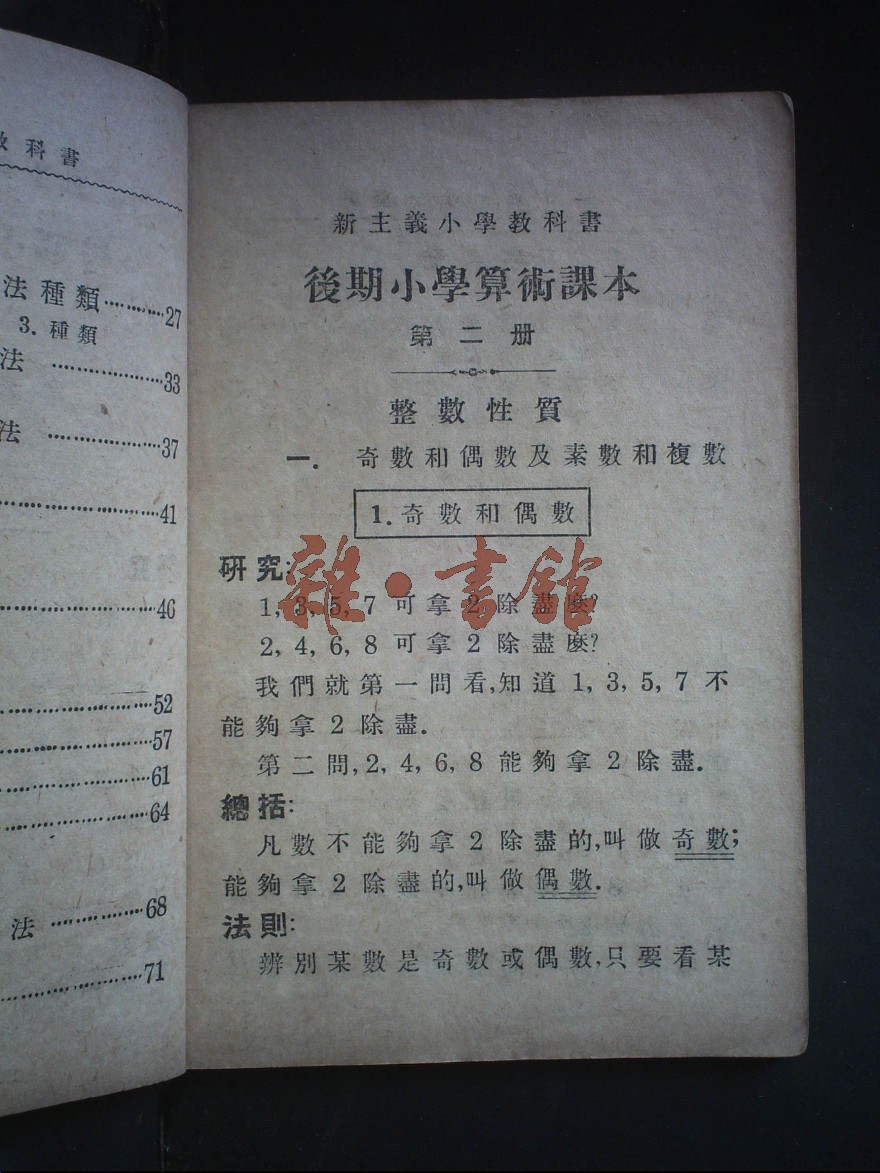 教科書
法種類············27
3. 種類
法 ············33
法 ············37
············41
············46
············52
············57
············61
············64
法 ············68
············71
新主義小學教科書
後期小學算術課本
第二册
整數性質
一. 奇數和偶數及素數和複數
1. 奇數和偶數
研究:
1, 3, 5, 7 可拿 2 除盡麼?
2, 4, 6, 8 可拿 2 除盡麼?
我們就第一問看,知道 1, 3, 5, 7 不
能夠拿 2 除盡.
第二問, 2, 4, 6, 8 能夠拿 2 除盡.
總括:
凡數不能夠拿 2 除盡的,叫做奇數;
能夠拿 2 除盡的,叫做偶數.
法則:
辨別某數是奇數或偶數,只要看某
雜·書館